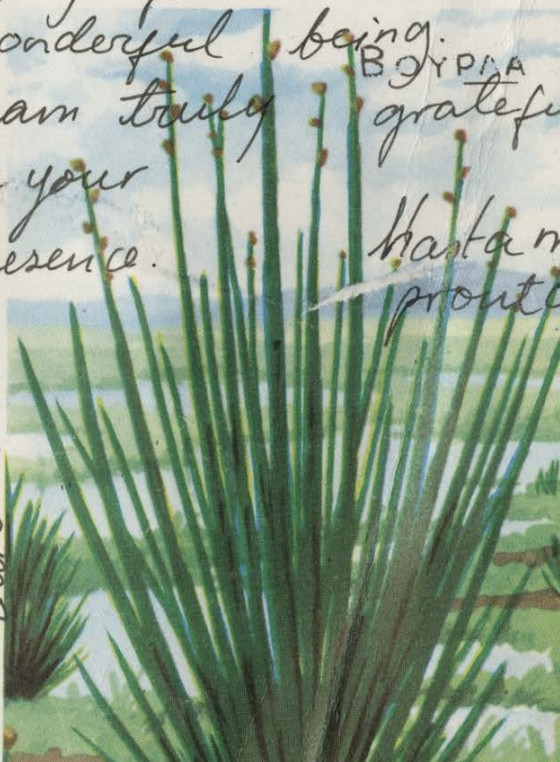 onderful being.
ΒΟΥΡΛΑ
am truly gratefu
your
esence.
Hasta
pronto